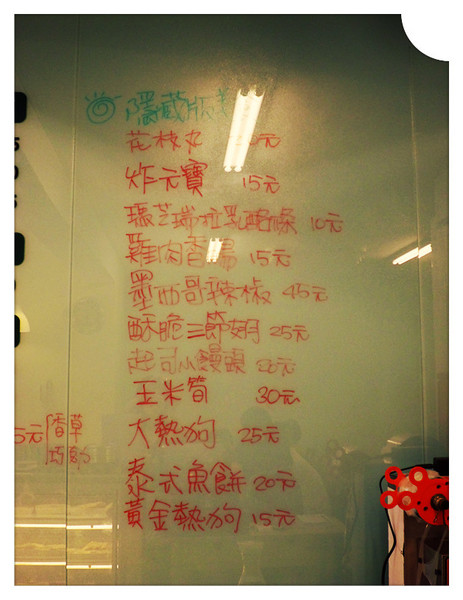 隱藏版
花枝丸 元
炸元寶 15元
瑪芝瑞拉乳酪條 10元
雞肉香腸 15元
墨西哥辣椒 45元
酥脆三節翅 25元
起司小饅頭 20元
玉米筍 30元
大熱狗 25元
5元 香草
巧
泰式魚餅 20元
黃金熱狗 15元